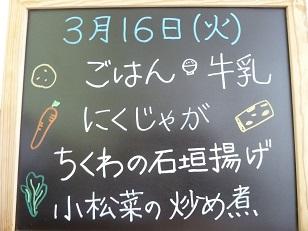 3月16日(火)
ごはん 牛乳
にくじゃが
ちくわの石垣揚げ
小松菜の炒め煮